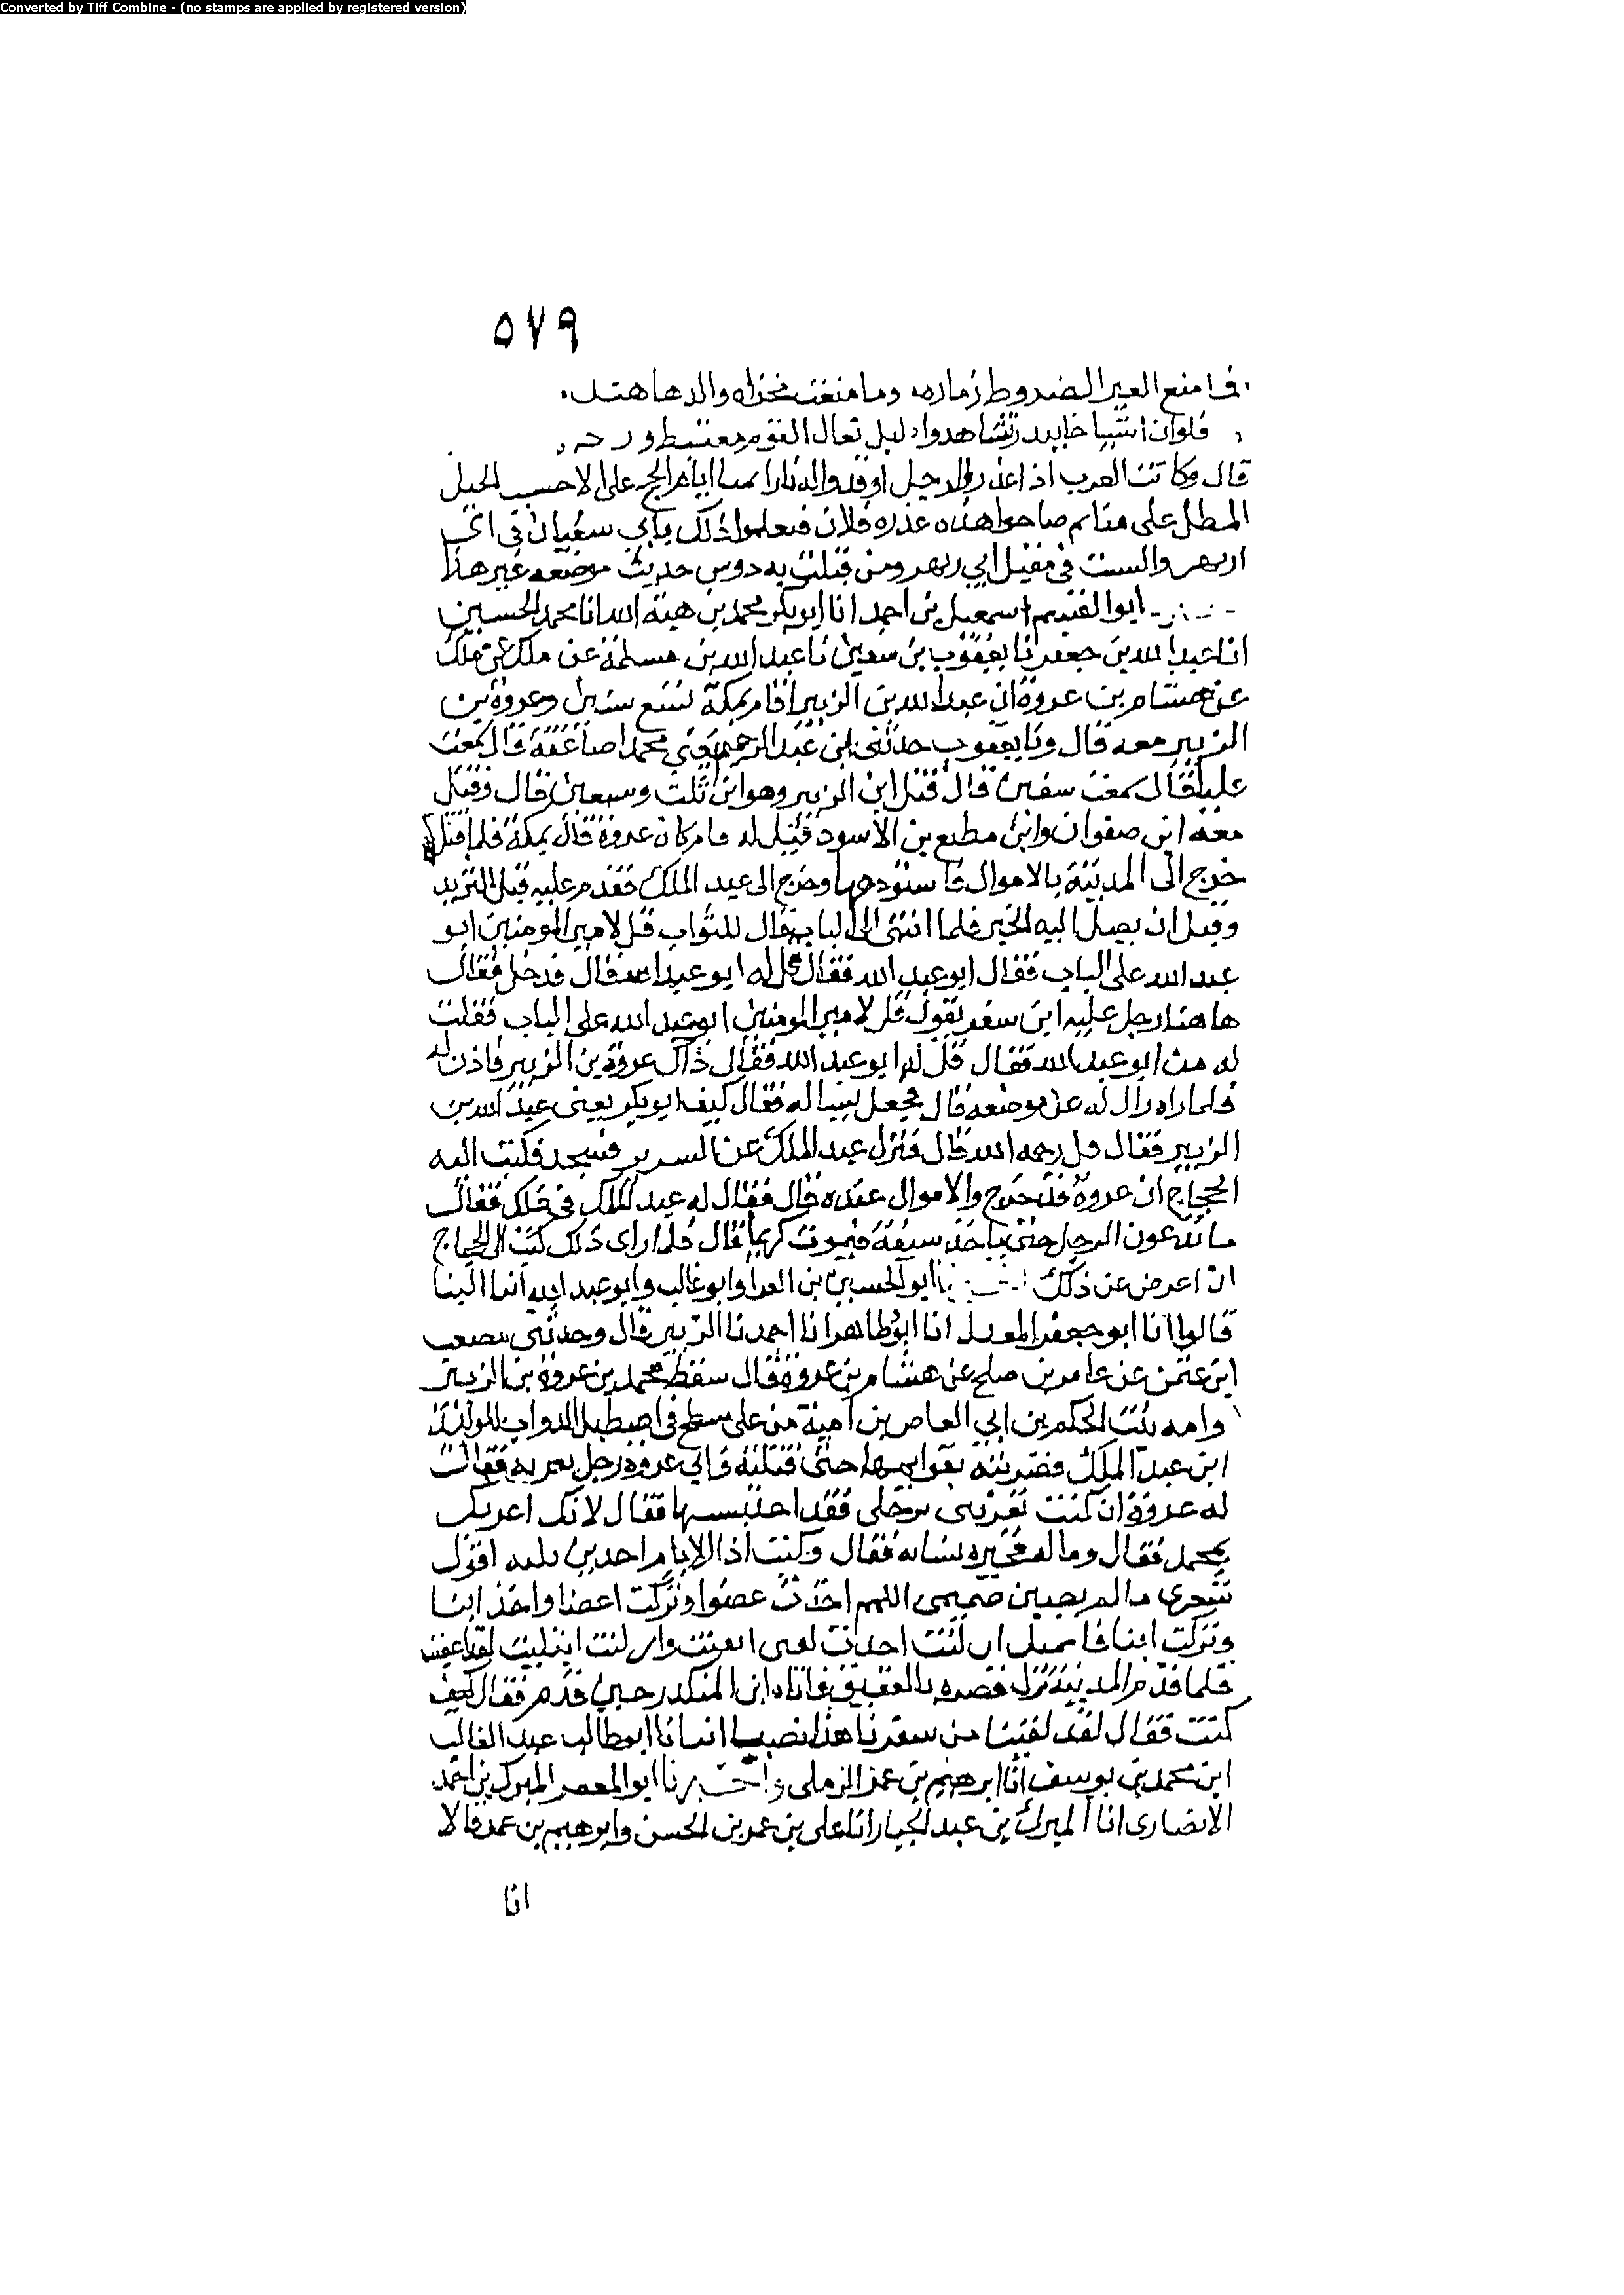 Converted by Tiff Combine - (no stamps are applied by registered version)
٥٧٩
فما منع العير الضروط ذماره وما منعت مخزاة والدها هند
فلوان اشياخا ببدر تشاهدوا لبل نعال القوم معتبط ورد
قال وكانت العرب اذا غدر الرجل اوقدوا له نارا بمنا ايام الحج على الاخشب الجبل
المطل على منا ثم صاحوا هذه غدرة فلان ففعلوا ذلك بابي سفيان في ابي
ازيهر والست في مقتل ابي ازيهر ومن قتلت به دوس حديث موضعه غير هذا
ابوا القسم اسمعيل بن احمد انا ابو بكر محمد بن هبة الله انا محمد بن الحسين
انا عبد الله بن جعفر نا يعقوب بن سفين نا عبد الله بن مسلمة عن ملك
عن هشام بن عروة ان عبد الله بن الزبير اقام بمكة تسع سنين وعروة بن
الزبير معه قال ونا يعقوب حدثني ابن عبد الرحيم يعني محمدا صاعقة قال سمعت
عليا قال سمعت سفين قال قتل ابن الزبير وهو ابن ثلث وسبعين قال وقتل
معه ابن صفوان وابن مطيع بن الاسود قيل له فاين كان عروة قال بمكة فلما قتل
خرج الى المدينة بالاموال فاستودعها وخرج الى عبد الملك فقدم عليه قبل البريد
وقبل ان يصل اليه الخبر فلما انتهى الى الباب قال للبواب قل لامير المومنين ابو
عبد الله على الباب فقال ابو عبد الله فقال قل له ابو عبد الله قال فدخل فقال
هاهنا رجل عليه اثر سفر يقول قل لامير المومنين ابو عبد الله على الباب فقلت
له من ابو عبد الله فقال قل له ابو عبد الله فقال ذاك عروة بن الزبير فاذن له
فلما راه زال له عن موضعه قال فجعل يساله فقال كيف ابو بكر يعني عبد الله بن
الزبير فقال قتل رحمه الله قال فنزل عبد الملك عن السرير فسجد فكتب اليه
الحجاج ان عروة قد خرج والاموال عنده قال فقال له عبد الملك في ذلك فقال
ما تدعون الرجل حتى ياخذ سيفه فيموت كريما قال فلما راى ذلك كتب الى الحجاج
ان اعرض عن ذلك ابو الحسين بن الفرا وابو غالب وابو عبد الله ابنا البنا
قالوا انا ابو جعفر المعدل انا ابو طاهر انا احمد نا الزبير قال وحدثني مصعب
ابن عثمن عن عامر بن صلح عن هشام بن عروة قال سقط محمد بن عروة بن الزبير
وامه بنت الحكم بن ابي العاص بن امية من على سطح في اصطبل الدواب للوليد
ابن عبد الملك فضربته بقوايمها حتى قتلته فاتي عروة رجل يعزيه فقال
له عروة ان كنت تعزيني برجلي فقد احتسبتها فقال لا بل اعزيك
بمحمد فقال وما له فخبره بشانه فقال وكنت اذا الايام احدثن اقول
شوى ما لم يصبن صميمي اللهم اخذت عضوا وتركت اعضا واخذت ابنا
وتركت ابنا فان كنت اخذت لقد ابقيت وان كنت ابتليت لقد اعفيت
فلما قدم المدينة نزل قصره بالعقيق فاتاه ابن المنكدر حين قدم فقال كيف
كنت فقال لقد لقينا من سفرنا هذا نصبا انبانا ابو طالب عبد القادر
ابن محمد بن يوسف انا ابرهيم بن عمر البرمكي واخبرنا ابو المعمر المبرك بن احمد
الانصارى انا المبرك بن عبد الجبار انا على بن عمر بن الحسن وابرهيم بن عمر قالا
انا